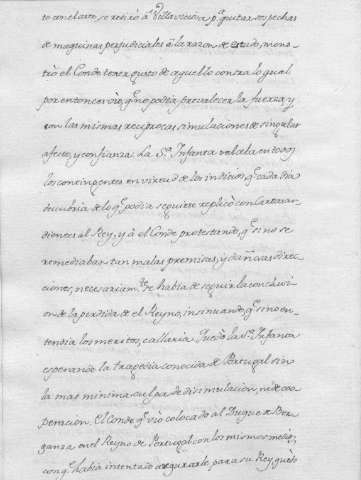 to en el acto, se retiró á Villaviciosa pª quitar sospechas
de maquinas perjudiciales á la razon de estado, mos-
tró el Conde tener gusto de aquello contra lo qual
por entonces vio, qe no podia prevalecer la fuerza, y
con las mismas reciprocas simulaciones de singular
afecto, y confianza. La Sª Infanta velaba en todos
los contingentes en virtud de los indicios qe cada dia
descubria de lo qe podia seguirse replicó con Cartas ar-
dientes al Rey, y á el Conde protestando, qe si no se
remediaban tan malas premisas, y dañosas direc-
ciones, necesariamte se habia de seguir la conclusi-
on de la perdida de el Reyno, insinuando, qe si no en-
tendia los meritos, callaria. Quedó la Sª Infanta
esperando la tragedia conocida de Portugal sin
la mas minima culpa de disimulacion, ni de coo-
peracion. El Conde qe vio colocado al Duque de Ber-
ganza en el Reyno de Portugal con los mismos medios,
con qe habia intentado asegurarle para su Rey, quiso